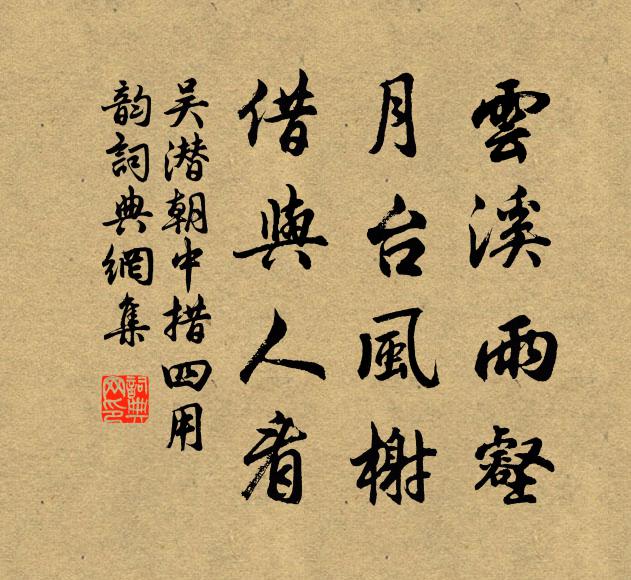 雲溪雨壑
月台風榭
借與人看
吴潜朝中措四用
韵詞典網集
詞典網印